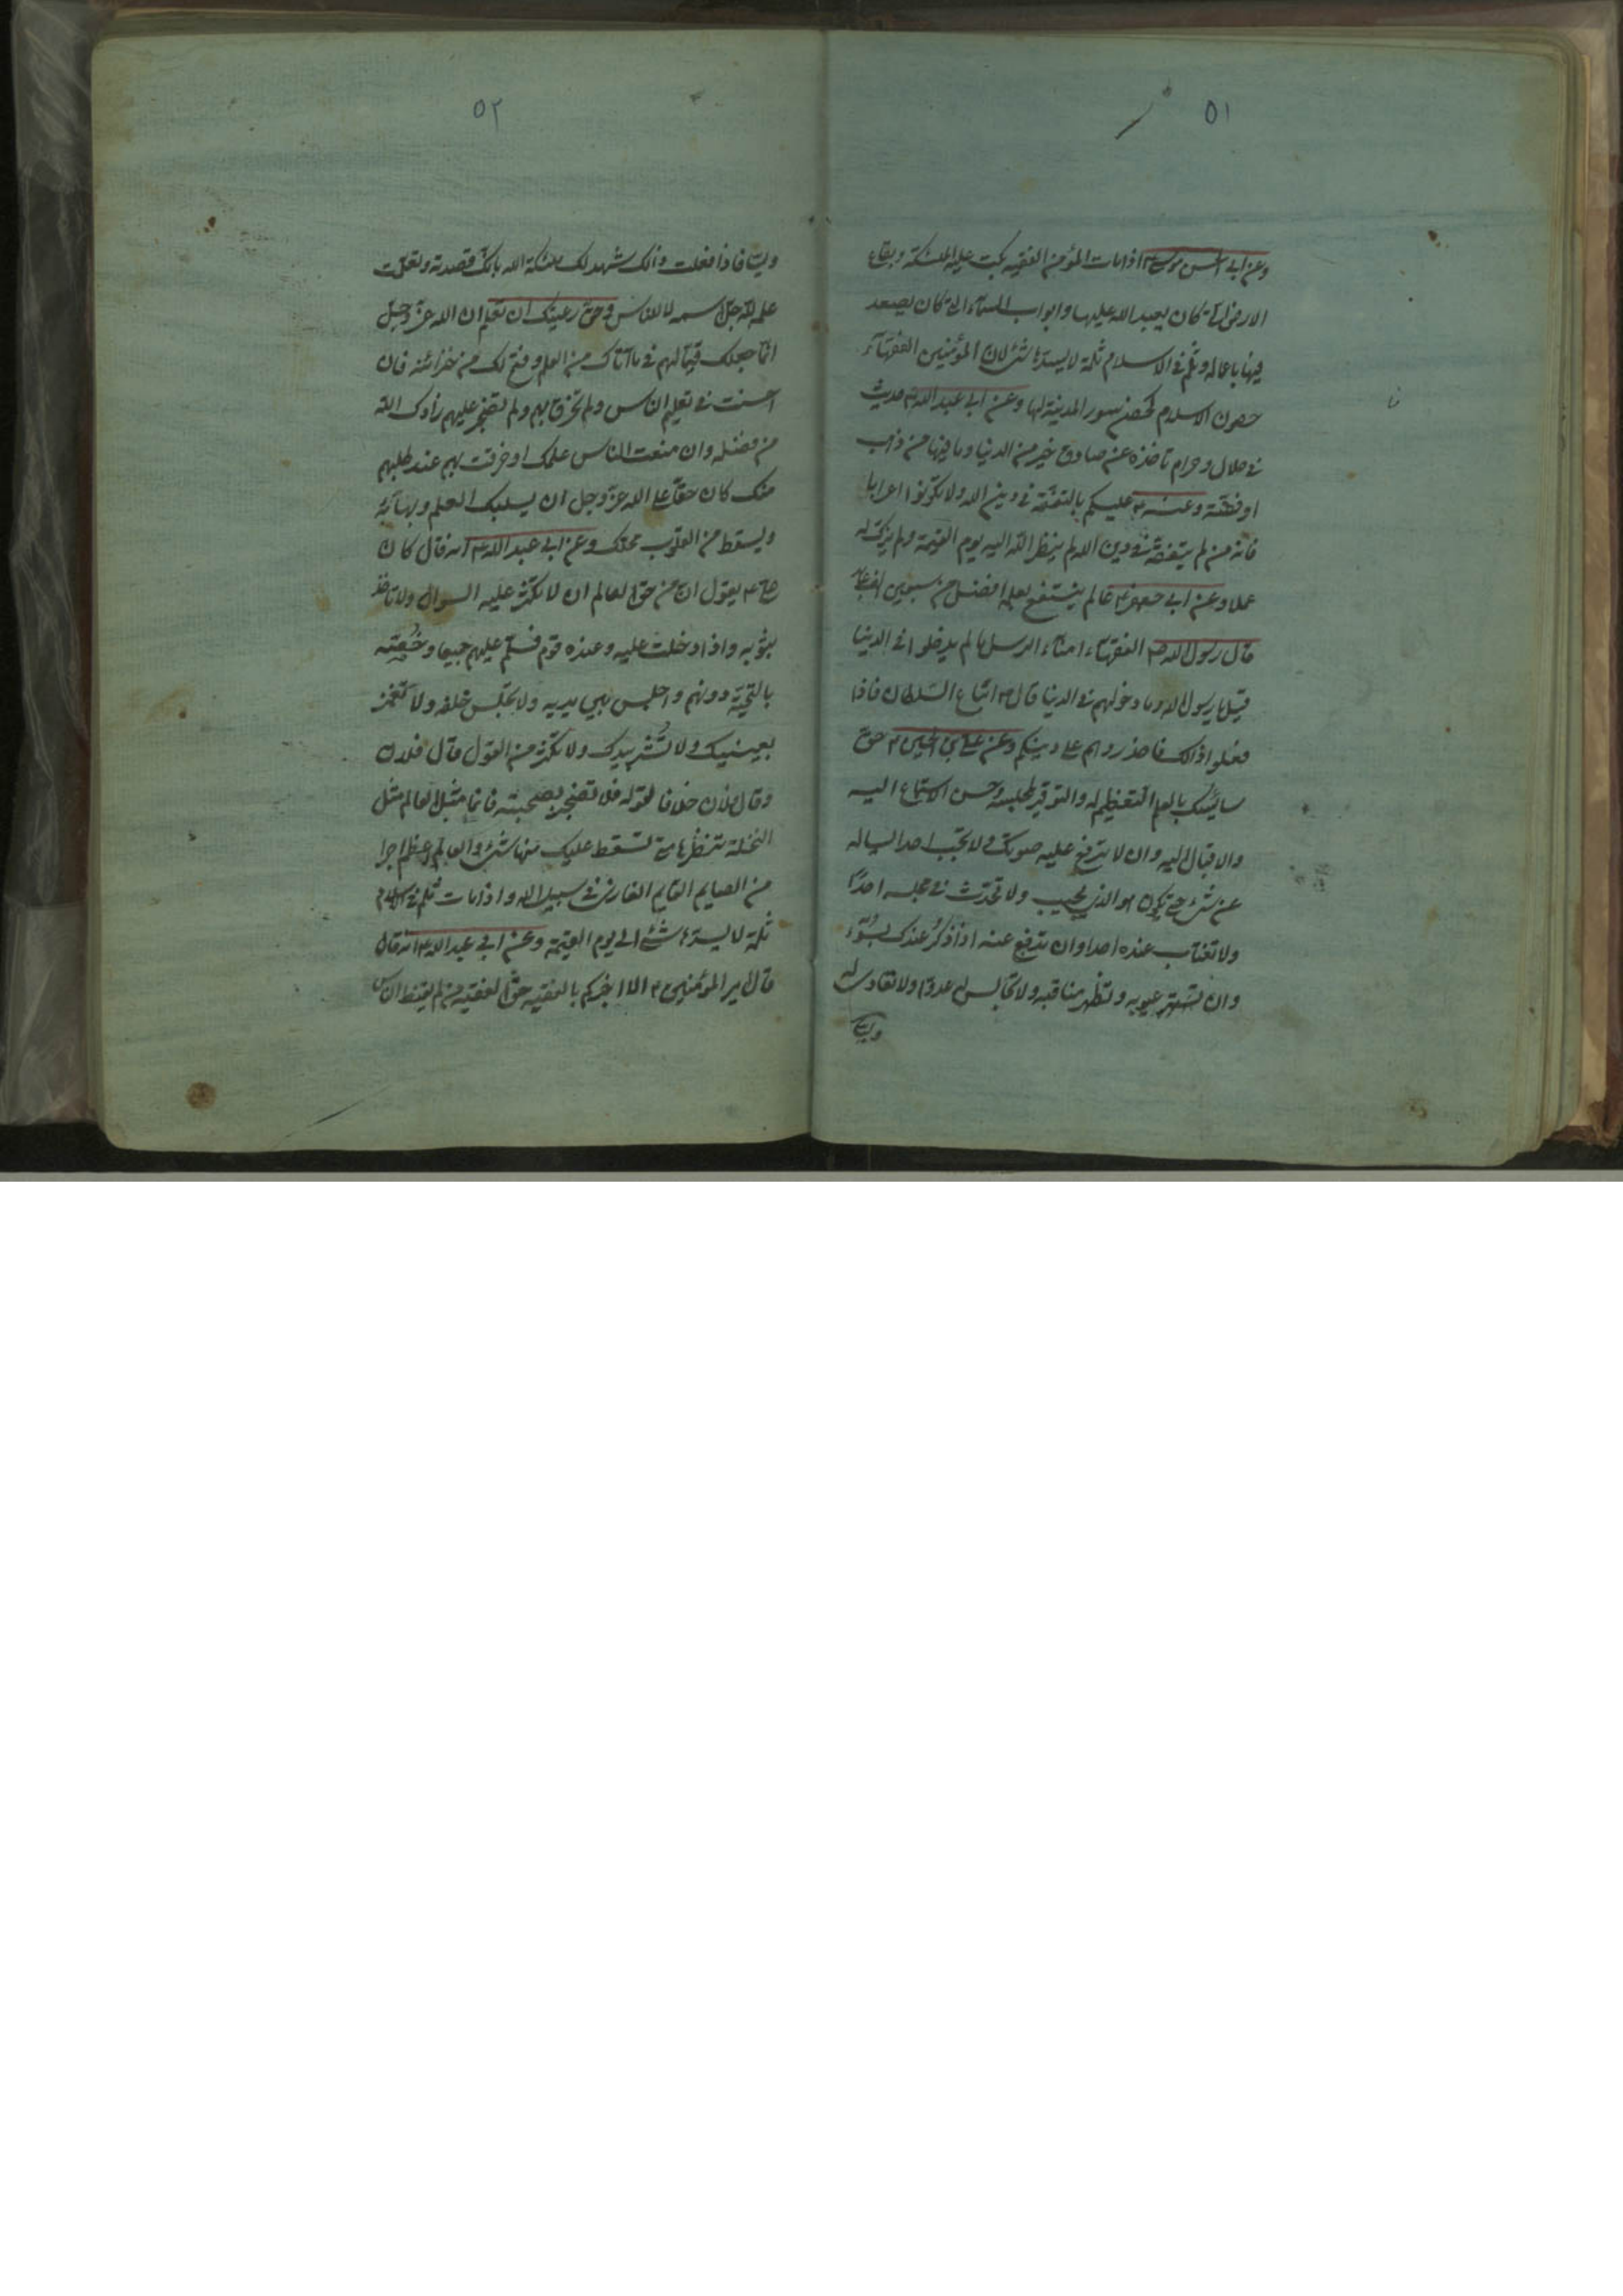 ٥١
وعن ابي الحسن موسى ع اذا مات المؤمن الفقيه بكت عليه الملئكة وبقاع
الارض التي كان يعبد الله عليها وابواب السماء التي كان يصعد
فيها باعماله وثلم في الاسلام ثلمة لا يسدها شئ لان المؤمنين الفقهاء
حصون الاسلام كحصن سور المدينة لها وعن ابي عبد الله ع حديث
في حلال وحرام تاخذه عن صادق خير من الدنيا وما فيها من ذهب
او فضة وعنه ع عليكم بالتفقه في دين الله ولا تكونوا اعرابا
فانه من لم يتفقه في دين الله لم ينظر الله اليه يوم القيمة ولم يزك له
عملا وعن ابي جعفر ع عالم ينتفع بعلمه افضل من سبعين الف عابد
قال رسول الله ص الفقهاء امناء الرسل ما لم يدخلوا في الدنيا
قيل يا رسول الله وما دخولهم في الدنيا قال ص اتباع السلطان فاذا
فعلوا ذالك فاحذروهم على دينكم وعن علي بن الحسين ع حق
سائسك بالعلم التعظيم له والتوقير لمجلسه وحسن الاستماع اليه
والاقبال اليه وان لا ترفع عليه صوتك ولا تجب احدا يساله
عن شئ حتى يكون هو الذي يجيب ولا تحدث في مجلسه احدا
ولا تغتاب عنده احدا وان تدفع عنه اذا ذكر عندك بسوء
وان تستر عيوبه وتظهر مناقبه ولا تجالس له عدوا ولا تعاد له
وليا
٥٢
وليا فاذا فعلت ذالك شهد لك ملئكة الله بانك قصدته وتعلمت
علمه لله جل اسمه لا للناس وحق رعيتك ان تعلم ان الله عز وجل
انما جعلك قيما لهم في ما آتاك من العلم وفتح لك من خزائنه فان
احسنت في تعليم الناس ولم تخرق بهم ولم تضجر عليهم زادك الله
من فضله وان منعت الناس علمك او خرقت بهم عند طلبهم
منك كان حقا على الله عز وجل ان يسلبك العلم وبهائه
ويسقط من القلوب محلك وعن ابي عبد الله ع انه قال كان
علي ع يقول ان من حق العالم ان لا تكثر عليه السوال ولا تاخذ
بثوبه واذا دخلت عليه وعنده قوم فسلم عليهم جميعا وخصه
بالتحية دونهم واجلس بين يديه ولا تجلس خلفه ولا تغمز
بعينيك ولا تشر بيدك ولا تكثر من القول قال فلان
وقال فلان خلافا لقوله فلا تضجر بصحبته فانما مثل العالم مثل
النخلة تنتظرها متى تسقط عليك منها شئ والعالم اعظم اجرا
من الصايم القايم الغازي في سبيل الله واذا مات ثلم في الاسلام
ثلمة لا يسدها شئ الى يوم القيمة وعن ابي عبد الله ع انه قال
قال امير المؤمنين ع الا اخبركم بالفقيه حق الفقيه من لم يقنط الناس